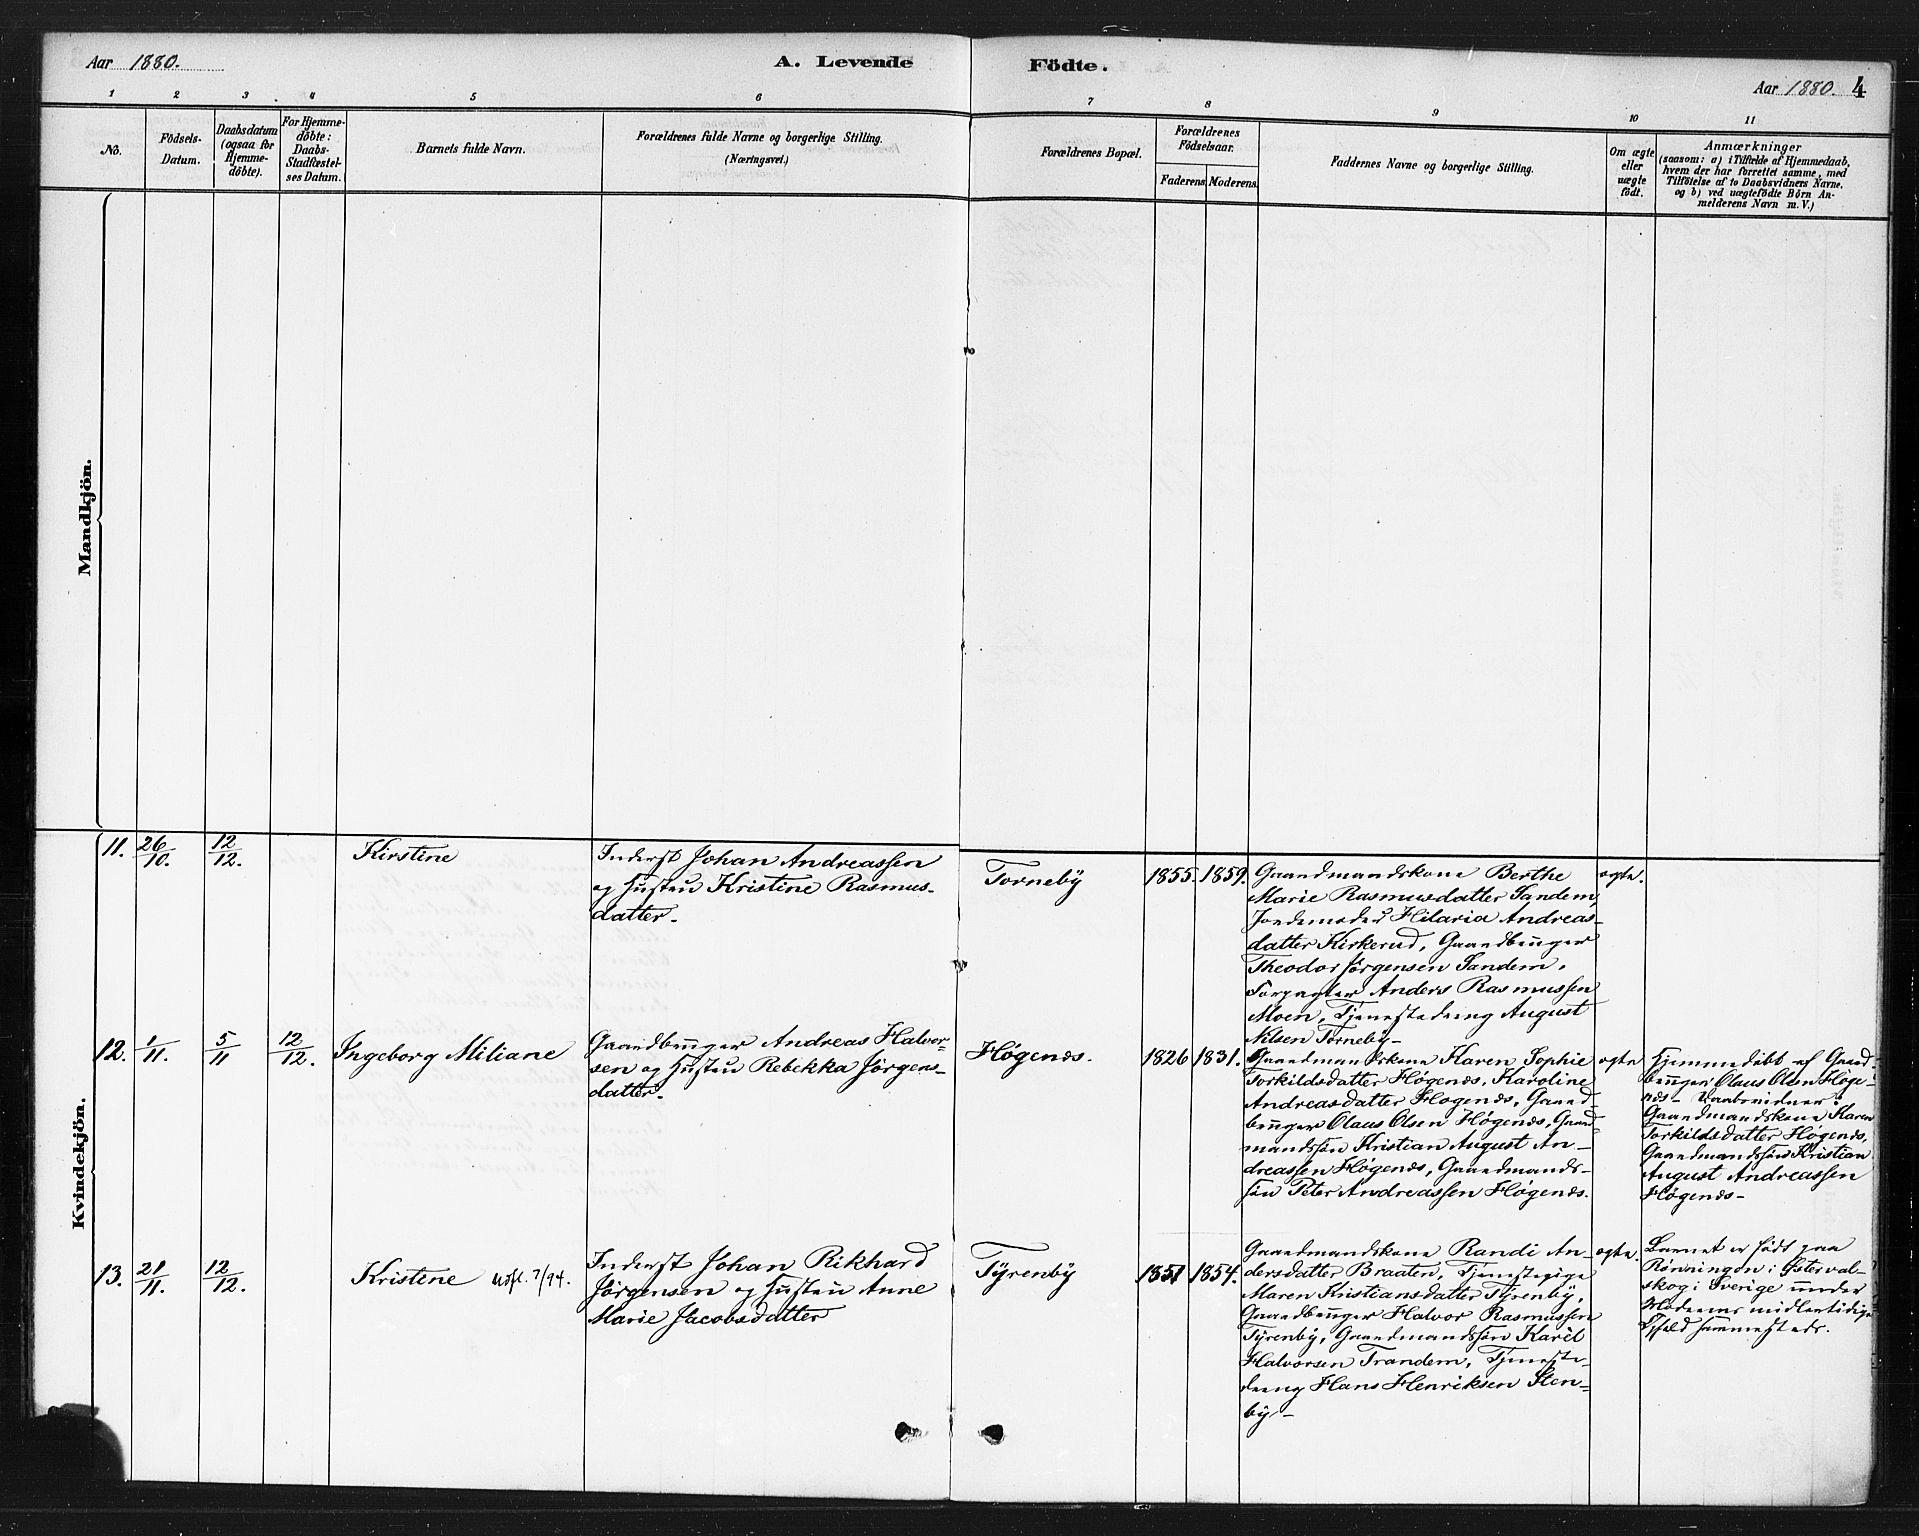 Aar 1880.
A. Levende Födte.
Aar 1880. 4
1 2 3 4 5 6 7 8 9 10 11
No.
Födsels-
Datum.
Daabsdatum
(ogsaa for
Hjemme-
döbte).
For Hjemme-
döbte:
Daabs-
Stadfæstel-
ses Datum.
Barnets fulde Navn.
Forældrenes fulde Navne og borgerlige Stilling.
(Næringsvei.)
Forældrenes Bopæl.
Forældrenes
Födselsaar.
Faderens. Moderens.
Faddernes Navne og borgerlige Stilling.
Om ægte
eller
uægte
födt.
Anmærkninger
(saasom: a) i Tilfælde af Hjemmedaab,
hvem der har forrettet samme, med
Tilföielse af to Daabsvidners Navne,
og b) ved uægtefödte Börn An-
melderens Navn m. V.)
Mandkjön.
Kvindekjön.
11. 26/10. 12/12. Kirstine
Inderst Johan Andreassen
og Hustru Kristine Rasmus-
datter.
Torneby 1855. 1859.
Gaardmandskone Berthe
Marie Rasmusdatter Sandem,
Jordemoder Hilaria Andreas-
datter Kirkerud, Gaardbruger
Theodor Jørgensen Sandem,
Forpagter Anders Rasmussen
Moen, Tjenestedreng August
Nilsen Torneby-
ægte.
12. 1/11. 5/11 12/12. Ingeborg Miliane
Gaardbruger Andreas Halvor-
sen og Hustru Rebekka Jørgens-
datter.
Høgenes. 1826 1831.
Gaardmandskone Karen Sophie
Torkildsdatter Høgenes, Karoline
Andreasdatter Høgenes, Gaard-
bruger Olaus Olsen Høgenes, Gaard-
mandssøn Kristian August An-
dreassen Høgenes, Gaardmands-
søn Peter Andreassen Høgenes.
ægte
Hjemmedøbt af Gaard-
bruger Olaus Olsen Høge-
nes- Daabsvidner:
Gaardmandskone Karen
Torkildsdatter Høgenes,
Gaardmandssøn Kristian
August Andreassen
Høgenes-
13. 21/11. 12/12. Kristine Udfl. 7/94.
Inderst Johan Rikhard
Jørgensen og Hustru Anne
Marie Jacobsdatter
Tyrenby 1851 1854.
Gaardmandskone Randi An-
dersdatter Braaten, Tjenestepige
Maren Kristiansdatter Tyrenby,
Gaardbruger Halvor Rasmussen
Tyrenby, Gaardmandssøn Karel
Halvorsen Trandem, Tjeneste-
dreng Hans Henriksen Sten-
by-
ægte.
Barnet er født paa
Rønningen i Østerval-
skog i Sverige under
Moderens midlertidige
Ophold sammesteds.